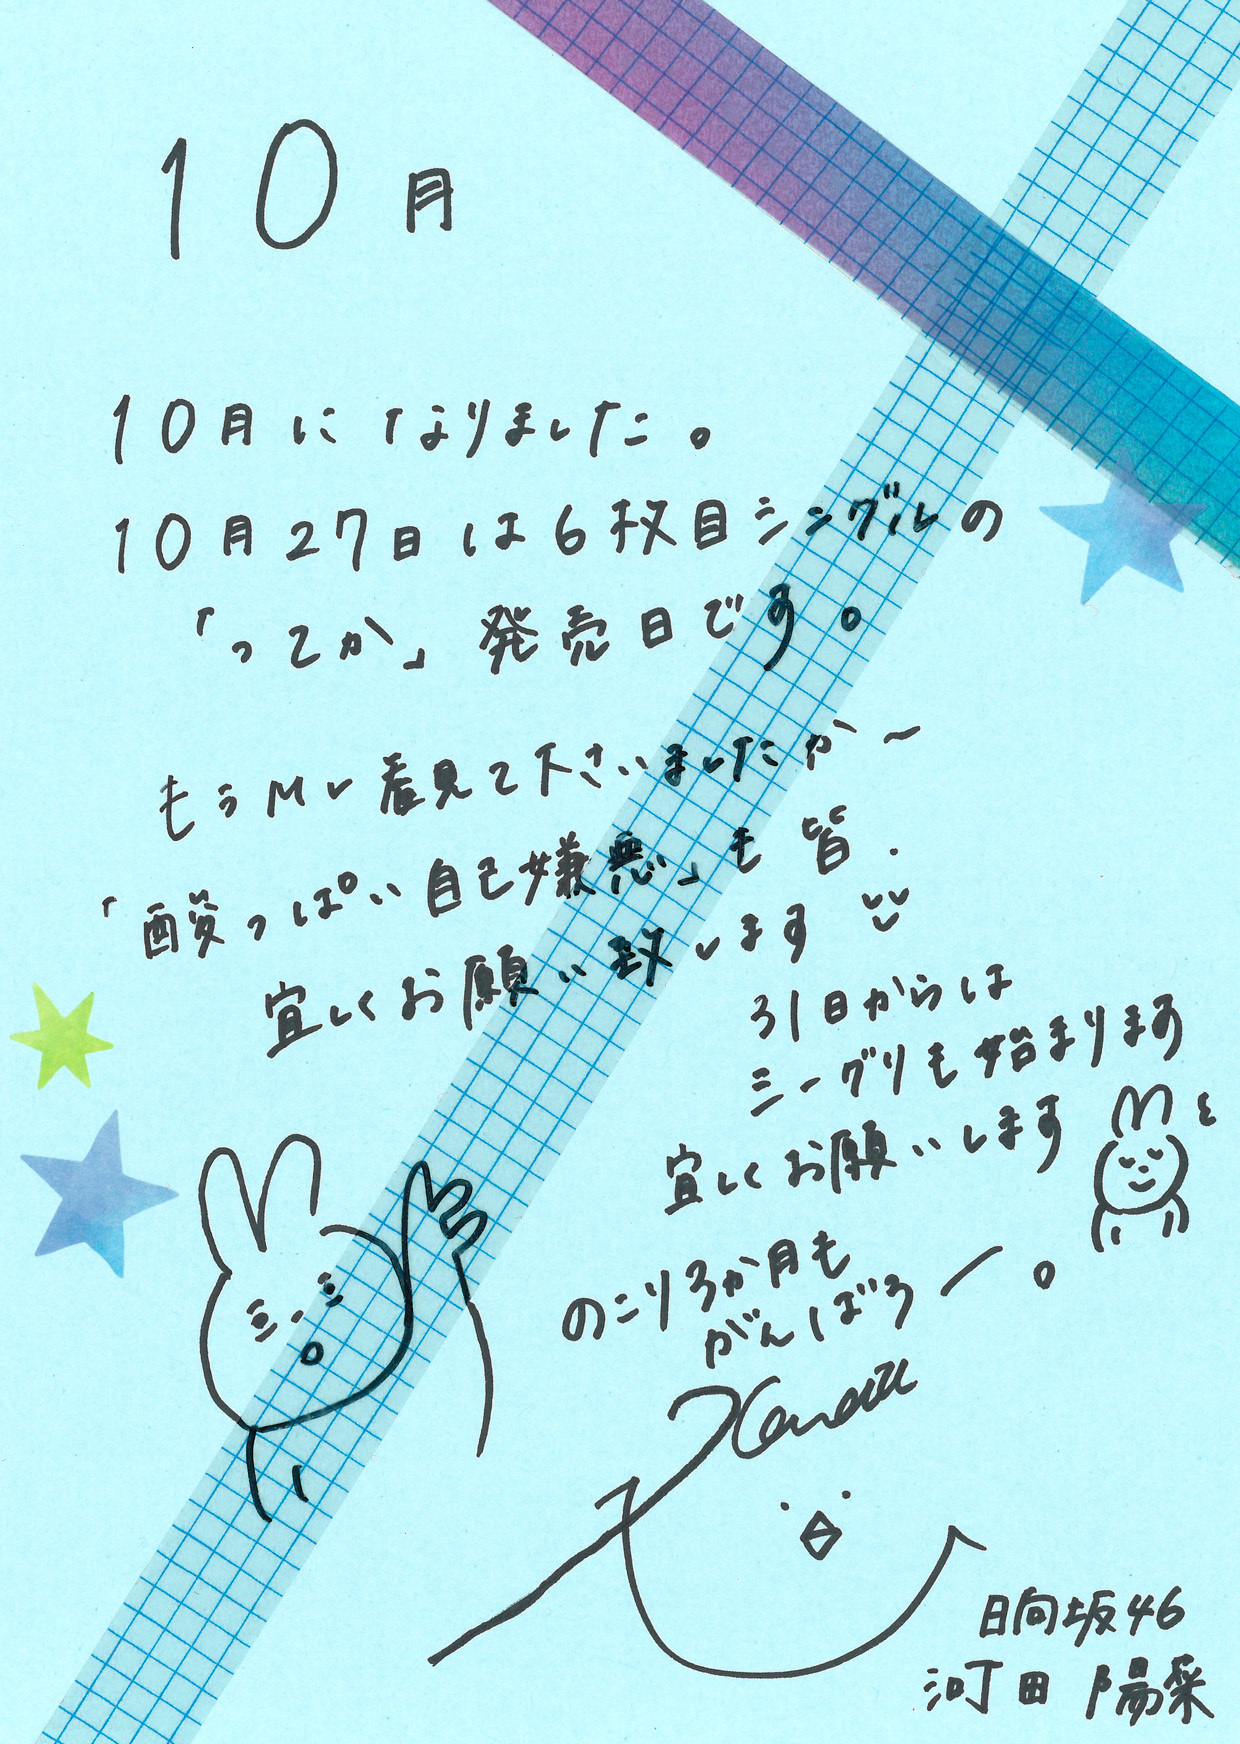 10月
10月になりました。
10月27日は6枚目シングルの
「ってか」発売日です。
もうMV看見て下さいましたか〜
「酸っぱい自己嫌悪」も皆.
宜しくお願い致します
31日からは
ミーグリも始まります
宜しくお願いします
のこり3か月も
がんばろー。
日向坂46
河田 陽菜